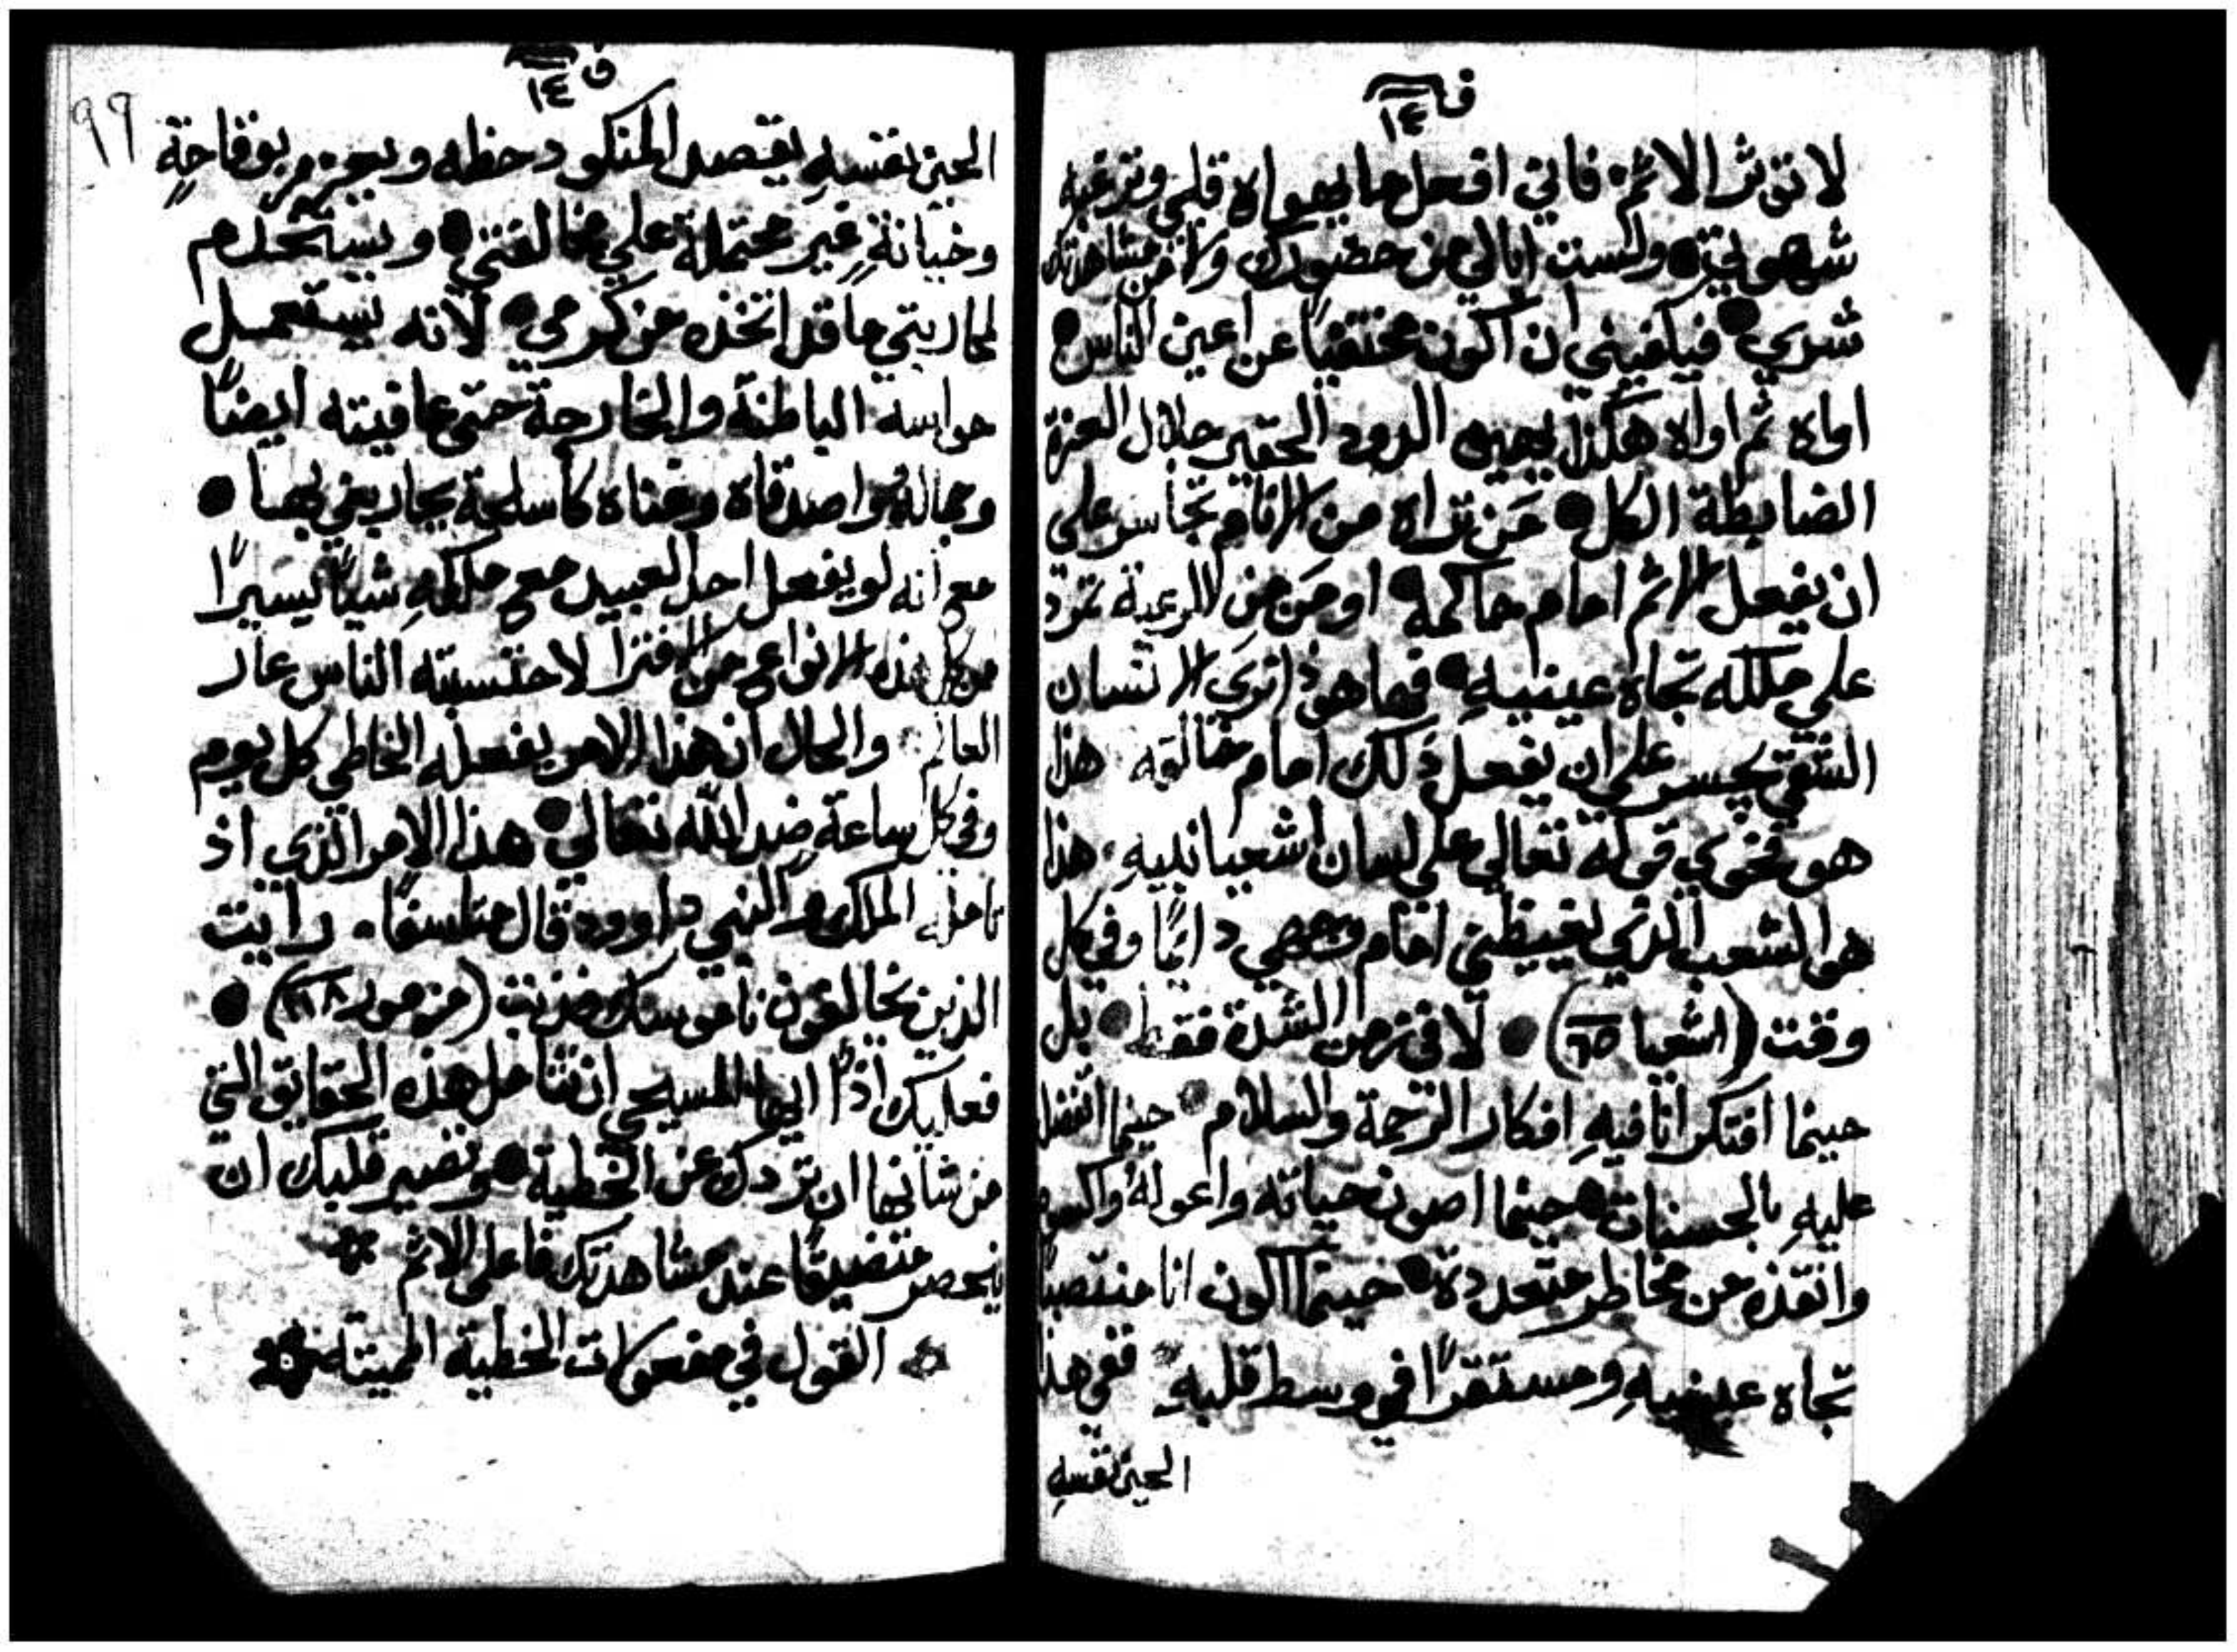 ف ١٤
لا تؤثر الاثم. فاني افعل ما يهواه قلبي وترغبه
شهوتي ولست ابالي من حضورك ولا من مشاهدتك
شري فيكفيني ان اكون مختفيًا عن اعين الناس
اواه ثم اواه هكذا يهين الدود الحقير جلال العزة
الضابطة الكل مَن تراه من الانام تجاسر علي
ان يفعل الاثم امام حاكمه او مَن من الرعية تمرد
علي ملكه تجاه عينيهِ فها هوذا تري الانسان
الشقي يجسر علي ان يفعل ذلك امام خالقه. هذا
هو فحوي قوله تعالي علي لسان اشعيا نبيهِ. هذا
هو الشعب الذي يغيظني امام وجهي دايمًا وفي كل
وقت (اشعيا ٦٥) لا في زمن الشدة فقط بل
حينما افتكر انا فيهِ افكار الرحمة والسلام حينما اتفضل
عليهِ بالحسنات حينما اصون حياته واعوله واكسوه
وانقذه من مخاطر متعددة حينما اكون انا منتصبًا
تجاه عينيهِ ومستقرًا في وسط قلبهِ ففي هذا
الحين نفسهِ
ف ١٤
٩٩
الحين نفسهِ يقصد المنكود حظه ويجزم بوقاحةٍ
وخيانةٍ غير محتملة علي مخالفتي ويستخدم
لمحاربتي ما قد اتخذه من كرمي لانه يستعمل
حواسه الباطنة والخارجة حتي عافيته ايضًا
وجماله واصدقاه وغناه كأسلحة يحاربني بها
مع انه لو يفعل احد العبيد مع ملكهِ شيًا يسيرًا
من كل هذه الانواع من الافترا لاحتسبته الناس عار
العالم. والحال ان هذا الامر يفعله الخاطي كل يوم
وفي كل ساعةٍ ضد الله تعالي هذا الامر الذي اذ
تامله الملك والنبي داوود قال متاسفًا. رايت
الذين يخالفون ناموسك فذبت (مزمور ١١٨)
فعليك اذًا ايها المسيحي ان تتامل هذه الحقايق التي
من شانها ان تردك عن الخطية وتصير قلبك ان
ينحصر متضيقًا عند مشاهدتك فاعلي الاثم
القول في مفعولات الخطية المميتة